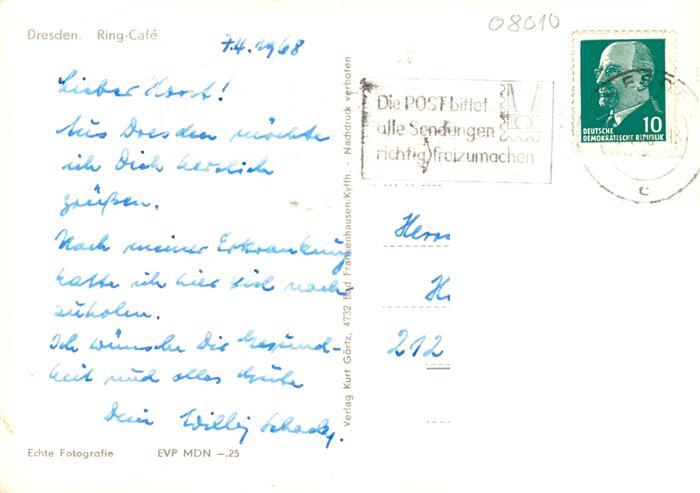 Dresden. Ring-Café
7.4.1968
08010
Lieber Horst!
Aus Dresden möchte
ich Dich herzlich
grüßen.
Nach meiner Erkrankung
hatte ich hier viel nach-
zuholen.
Ich wünsche Dir Gesund-
heit und alles Gute
Dein Willy
Echte Fotografie EVP MDN –.25
Verlag Kurt Görtz, 4732 Bad Frankenhausen/Kyffh. · Nachdruck verboten
Die POST bittet
alle Sendungen
richtig freizumachen
DEUTSCHE
DEMOKRATISCHE REPUBLIK 10
c
Herrn
H
212